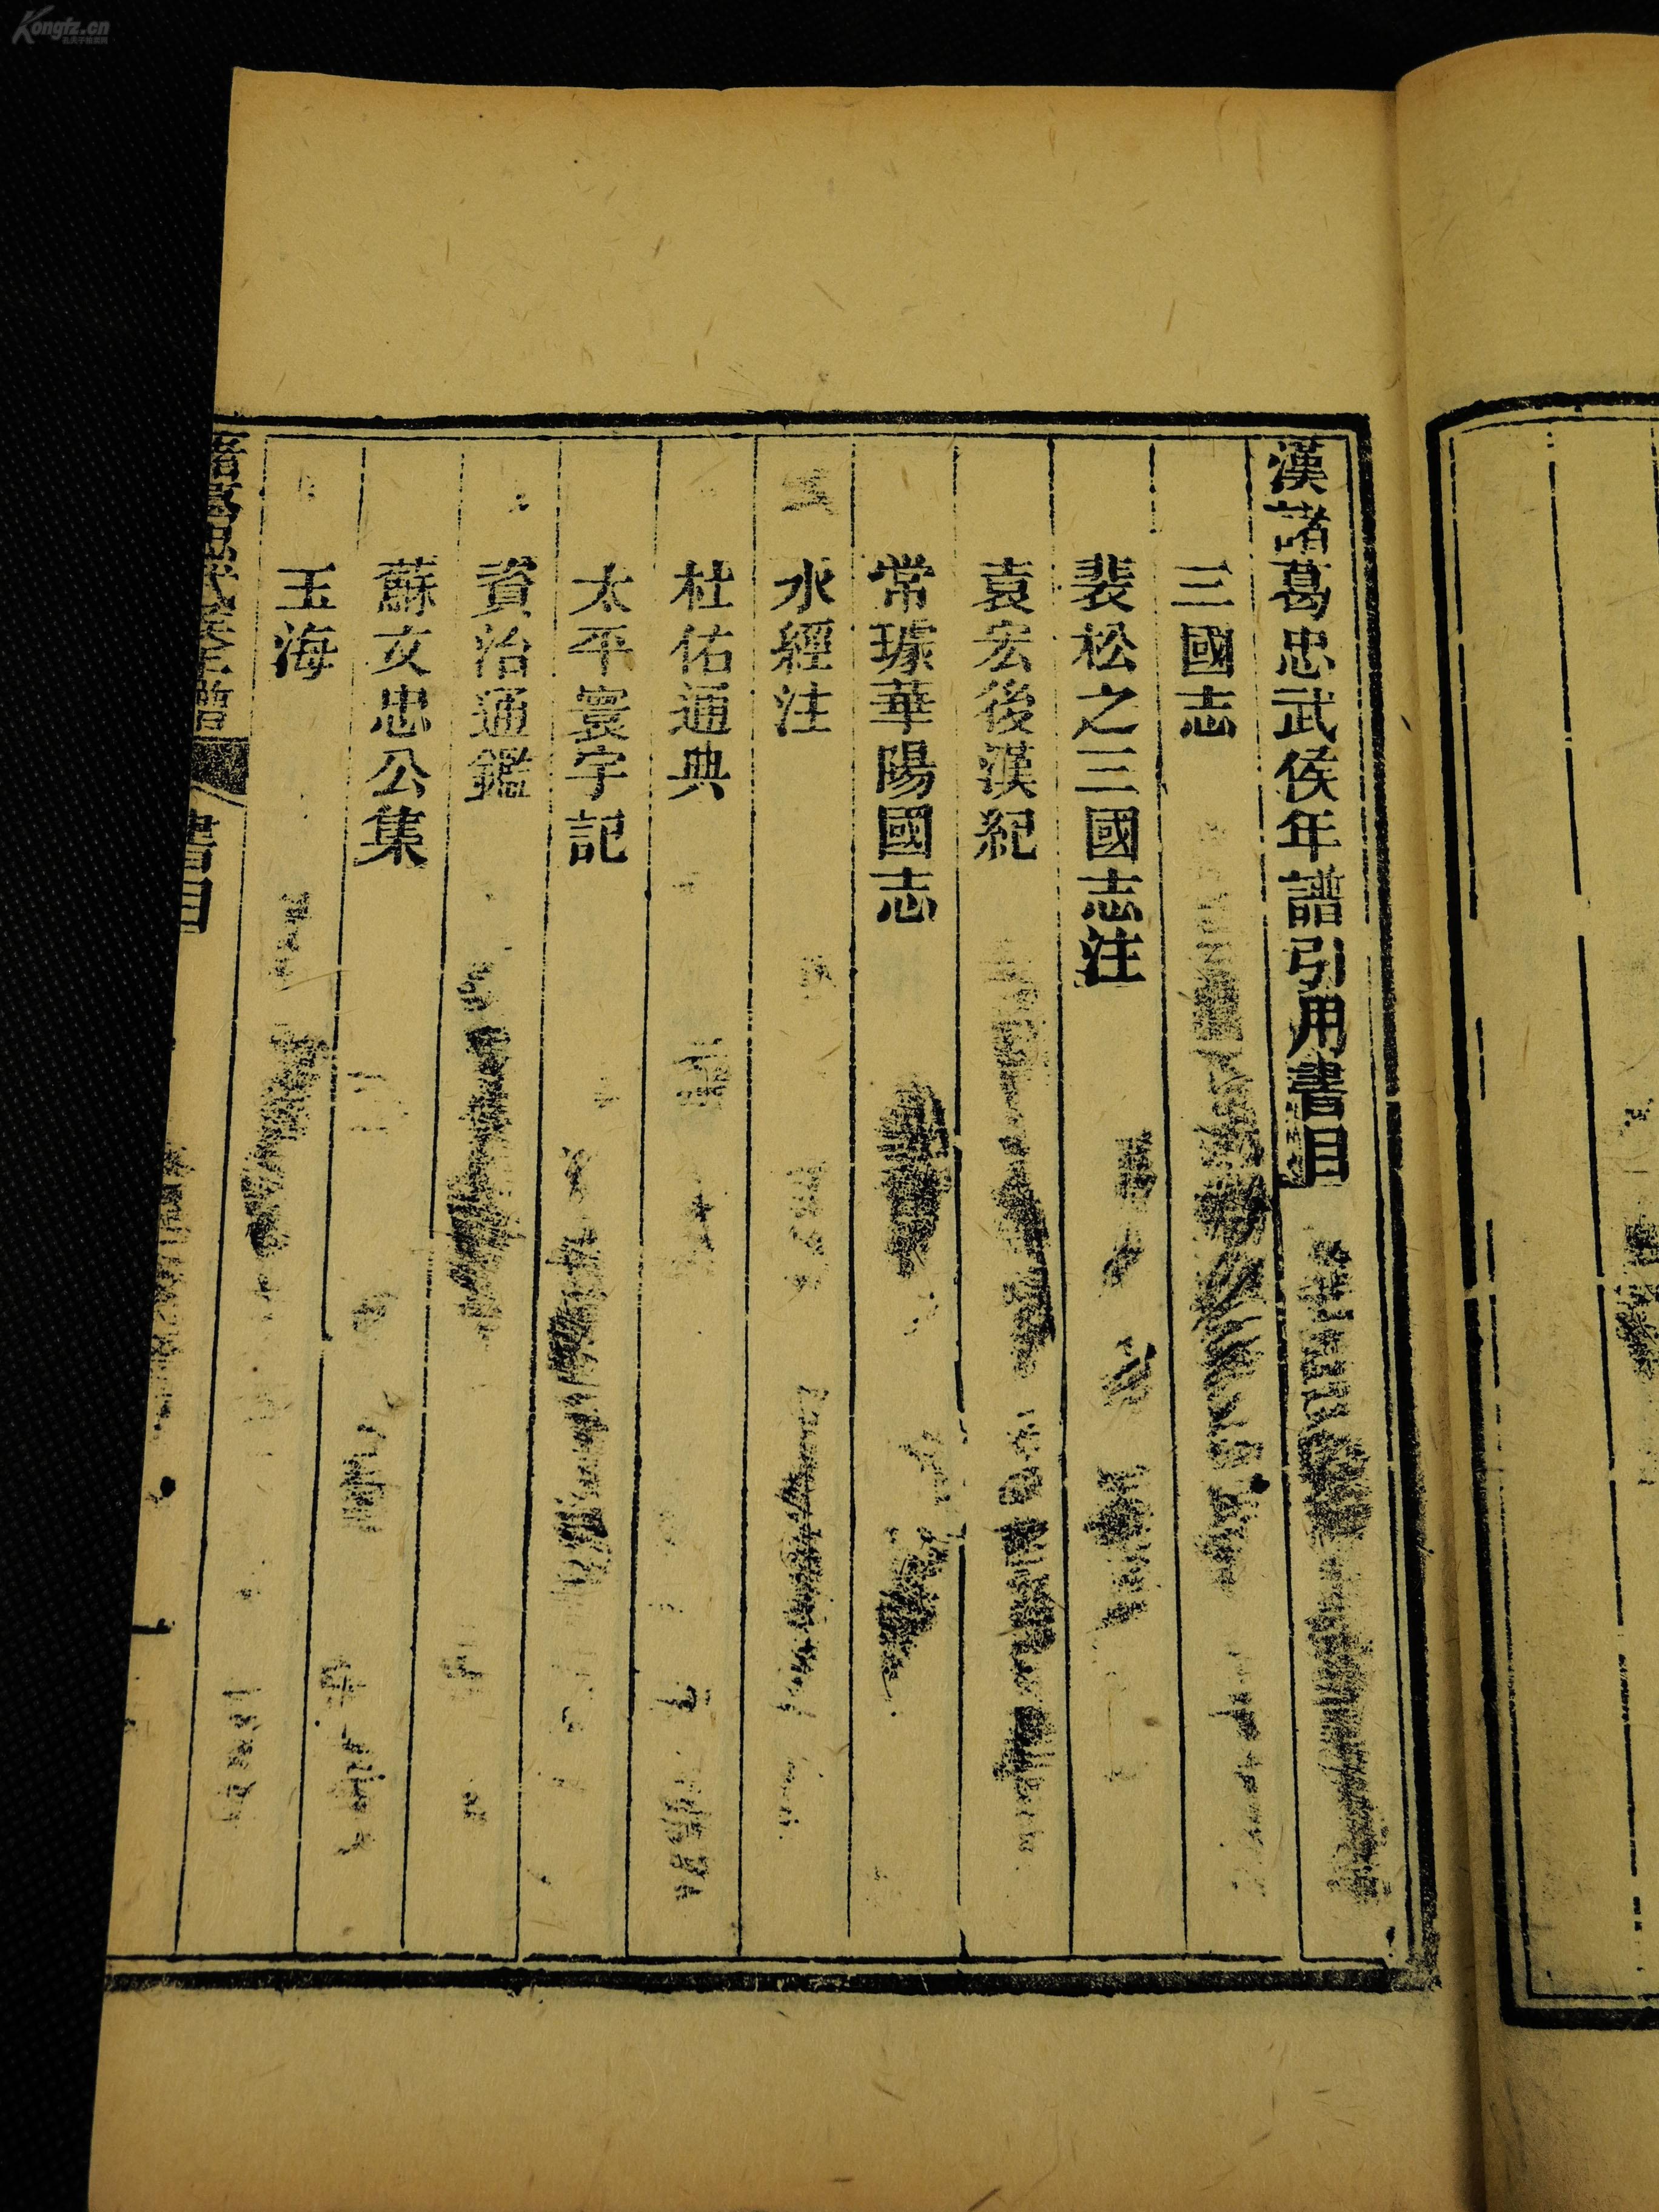 漢諸葛忠武侯年譜引用書目
三國志
裴松之三國志注
袁宏後漢紀
常璩華陽國志
水經注
杜佑通典
太平寰宇記
資治通鑑
蘇文忠公集
玉海
諸葛忠武侯年譜
書目
一
Kongfz.cn